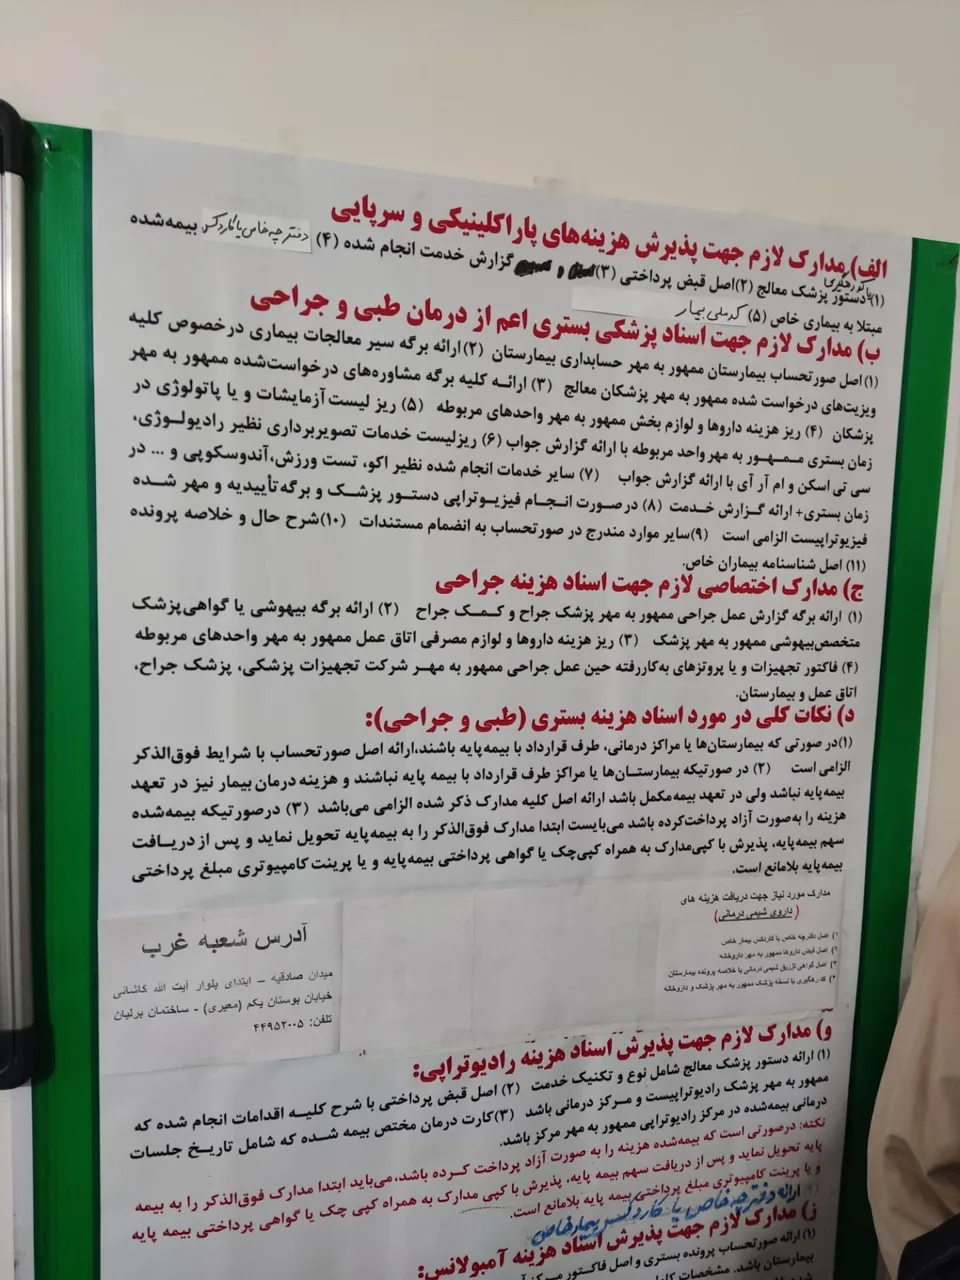 الف) مدارک لازم جهت پذیرش هزینه‌های پاراکلینیکی و سرپایی
(۱) دستور پزشک معالج (۲) اصل قبض پرداختی (۳) گزارش خدمت انجام شده (۴) دفترچه خاص یا کاردکس بیمه‌شده
یا کد رهگیری
مبتلا به بیماری خاص (۵) کد ملی بیمار
ب) مدارک لازم جهت اسناد پزشکی بستری اعم از درمان طبی و جراحی
(۱) اصل صورتحساب بیمارستان ممهور به مهر حسابداری بیمارستان (۲) ارائه برگه سیر معالجات بیماری درخصوص کلیه
ویزیت‌های درخواست شده ممهور به مهر پزشکان معالج (۳) ارائـه کلیه برگه مشاوره‌های درخواست‌شده ممهور به مهر
پزشکان (۴) ریز هزینه داروها و لوازم بخش ممهور به مهر واحدهای مربوطه (۵) ریز لیست آزمایشات و یا پاتولوژی در
زمان بستری مـمـهـور به مهر واحد مربوطه با ارائه گزارش جواب (۶) ریزلیست خدمات تصویربرداری نظیر رادیولوژی،
سی تی اسکن و ام آر آی با ارائه گزارش جواب (۷) سایر خدمات انجام شده نظیر اکو، تست ورزش،آندوسکوپی و ... در
زمان بستری+ ارائه گـزارش خـدمت (۸) درصورت انجـام فیزیـوتراپی دستـور پزشـک و برگه تأییدیه و مهر شـده
فیزیوتراپیست الزامی است (۹)سایر موارد مندرج در صورتحساب به انضمام مستندات (۱۰)شرح حال و خلاصه پرونده
(۱۱) اصل شناسنامه بیماران خاص.
ج) مدارک اختصاصی لازم جهت اسناد هزینه جراحی
(۱) ارائه برگه گزارش عمل جراحی ممهور به مهر پزشک جراح و کـمـک جراح (۲) ارائه برگه بیهوشی یا گواهی‌پزشک
متخصص‌بیهوشی ممهور به مهر پزشک (۳) ریز هزینه داروها و لوازم مصرفی اتاق عمل ممهور به مهر واحدهای مربوطه
(۴) فاکتور تجهیزات و یا پروتزهای به‌کاررفته حین عمل جراحی ممهور به مهـر شرکت تجهیزات پزشکی، پزشک جراح،
اتاق عمل و بیمارستان.
د) نکات کلی در مورد اسناد هزینه بستری (طبی و جراحی):
(۱)در صورتی که بیمارستان‌ها یا مراکز درمانی، طرف قرارداد با بیمه‌پایه باشند،ارائه اصل صورتحساب با شرایط فوق‌الذکر
الزامی است (۲) در صورتیکه بیمارستـان‌ها یا مراکز طرف قرارداد با بیمه پایه نباشند و هزینه درمان بیمار نیز در تعهد
بیمه‌پایه نباشد ولی در تعهد بیمه‌مکمل باشد ارائه اصل کلیه مدارک ذکر شده الزامی می‌باشد (۳) درصورتیکه بیمه‌شده
هزینه را به‌صورت آزاد پرداخت‌کرده باشد می‌بایست ابتدا مدارک فوق‌الذکر را به بیمه‌پایه تحویل نماید و پس از دریـافت
سهم بیمه‌پایه، پذیرش با کپی‌مدارک به همراه کپی‌چک یا گواهی پرداختی بیمه‌پایه و یا پرینت کامپیوتری مبلغ پرداختی
بیمه‌پایه بلامانع است.
مدارک مورد نیاز جهت دریافت هزینه های
(داروی شیمی درمانی)
۱) اصل دفترچه خاص یا کاردکس بیمار خاص
۲) اصل قبض داروها ممهور به مهر داروخانه
۳) اصل گواهی تزریق شیمی درمانی یا خلاصه پرونده بیمارستان
۴) کد رهگیری یا نسخه پزشک ممهور به مهر پزشک و داروخانه
آدرس شعبه غرب
میدان صادقیه – ابتدای بلوار آیت الله کاشانی
خیابان بوستان یکم (معیری) - ساختمان برلیان
تلفن: ۴۴۹۵۲۰۰۵
و) مدارک لازم جهت پذیرش اسناد هزینه رادیوتراپی:
(۱) ارائه دستور پزشک معالج شامل نوع و تکنیک خدمت (۲) اصل قبض پرداختی با شرح کلیـه اقدامات انجام شده که
ممهور به مهر پزشک رادیوتراپیست و مـرکز درمانی باشد (۳)کارت درمان مختص بیمه شـده که شامل تاریـخ جلسات
درمانی بیمه‌شده در مرکز رادیوتراپی ممهور به مهر مرکز باشد.
نکته: درصورتی است که بیمه‌شده هزینه را به صورت آزاد پرداخت کـرده باشد،می‌باید ابتدا مدارک فوق‌الذکر را به بیمه
پایه تحویل نماید و پس از دریافت سهم بیمه پایه، پذیرش با کپی مدارک به همراه کپی چک یا گواهی پرداختی بیمه پایه
و یا پرینت کامپیوتری مبلغ پرداختی بیمه پایه بلامانع است.
ارائه دفترچه خاص یا کاردکس بیمار خاص
ز) مدارک لازم جهت پذیرش اسناد هزینه آمبولانس:
(۱) ارائه صورتحساب پرونده بستری و اصل فاکتور
بیمارستان باشد. مشخصات